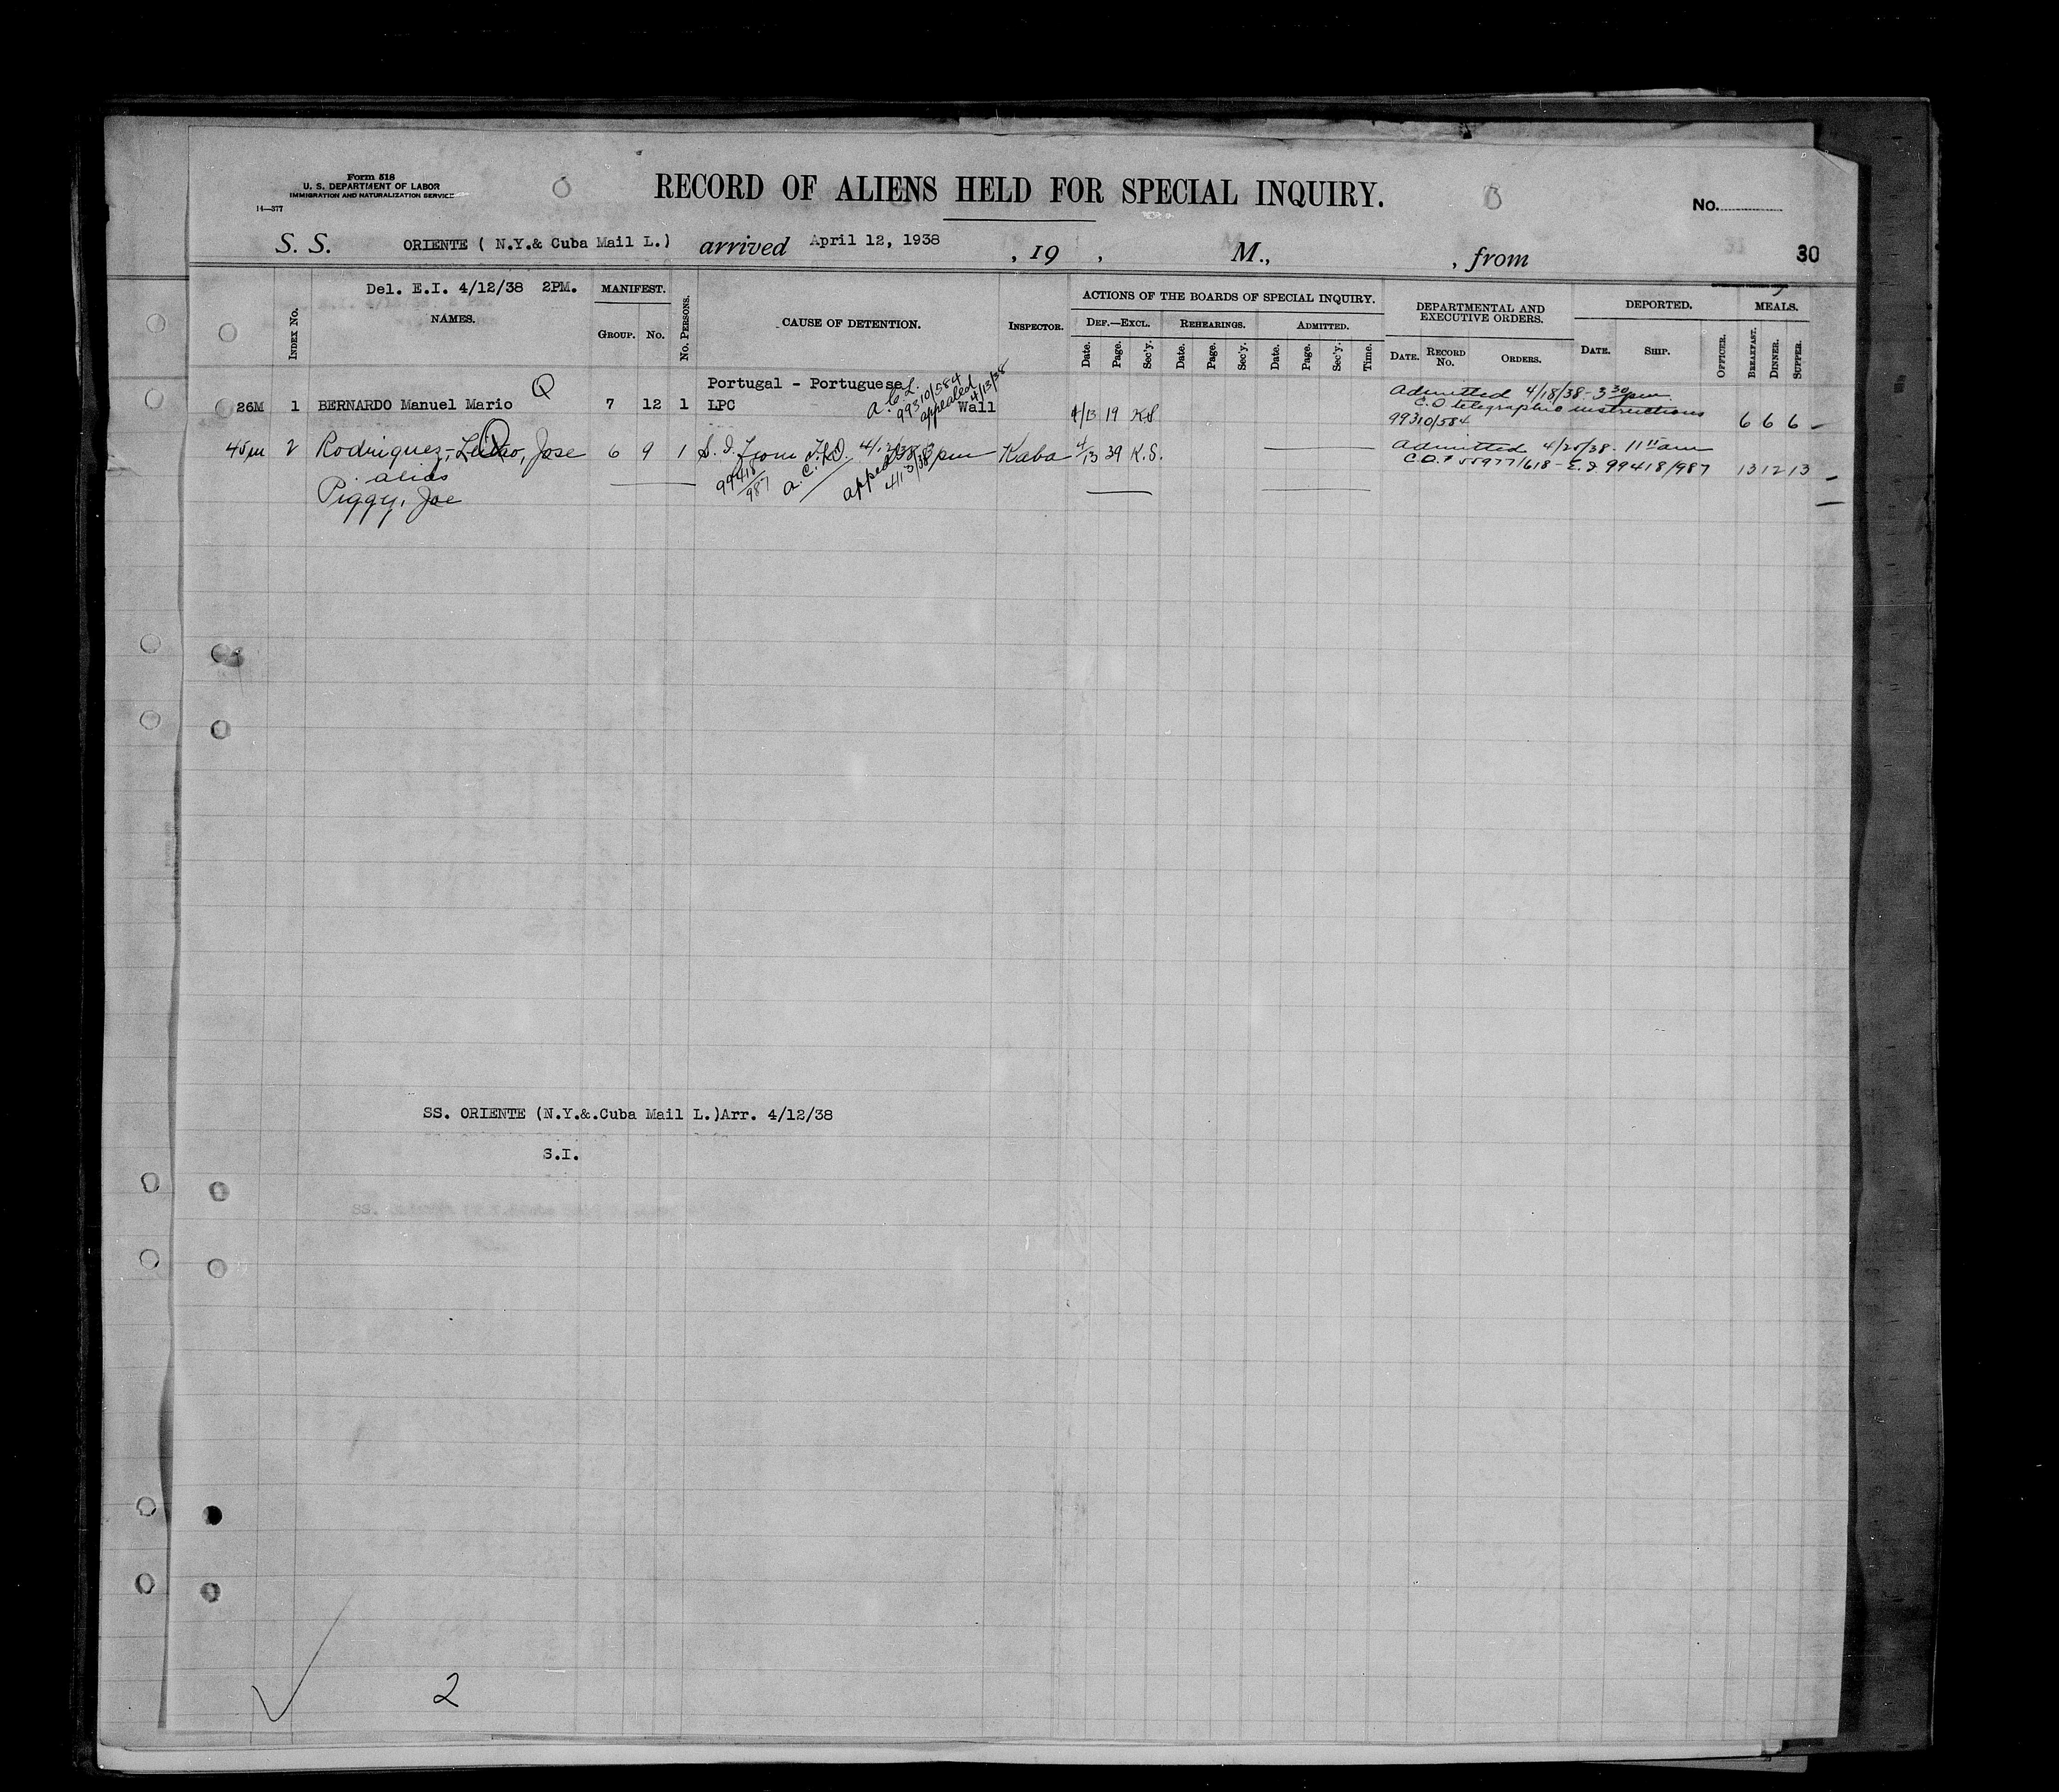 Form 518
U. S. DEPARTMENT OF LABOR
IMMIGRATION AND NATURALIZATION SERVICE
14—377
RECORD OF ALIENS HELD FOR SPECIAL INQUIRY.
No.
S. S. ORIENTE ( N.Y.& Cuba Mail L.) arrived April 12, 1938 , 19 , M., , from 30
Del. E.I. 4/12/38 2PM.
INDEX No. NAMES. MANIFEST. GROUP. No. No. PERSONS. CAUSE OF DETENTION. INSPECTOR.
ACTIONS OF THE BOARDS OF SPECIAL INQUIRY.
DEF.—EXCL. REHEARINGS. ADMITTED.
Date. Page. Sec'y. Date. Page. Sec'y. Date. Page. Sec'y. Time.
DEPARTMENTAL AND EXECUTIVE ORDERS.
DATE. RECORD No. ORDERS.
DEPORTED.
DATE. SHIP. OFFICER.
MEALS.
BREAKFAST. DINNER. SUPPER.
Portugal - Portuguese
26M 1 BERNARDO Manuel Mario Q 7 12 1 LPC Wall 4/13 19 K.S 6 6 6 -
99310/584
appealed
4/13/38
Admitted 4/18/38 - 3 30 pm
C.O telegraphic instructions
99310/584
45m 2 Rodriguez, Jose 6 9 1 S. I. from Kaba 4/13 39 K.S. 13 12 13
alias
Piggy, Joe
99418/987
4/13/38
Admitted 4/25/38. 11 am
99418/987
SS. ORIENTE (N.Y.&.Cuba Mail L.)Arr. 4/12/38
S.I.
2